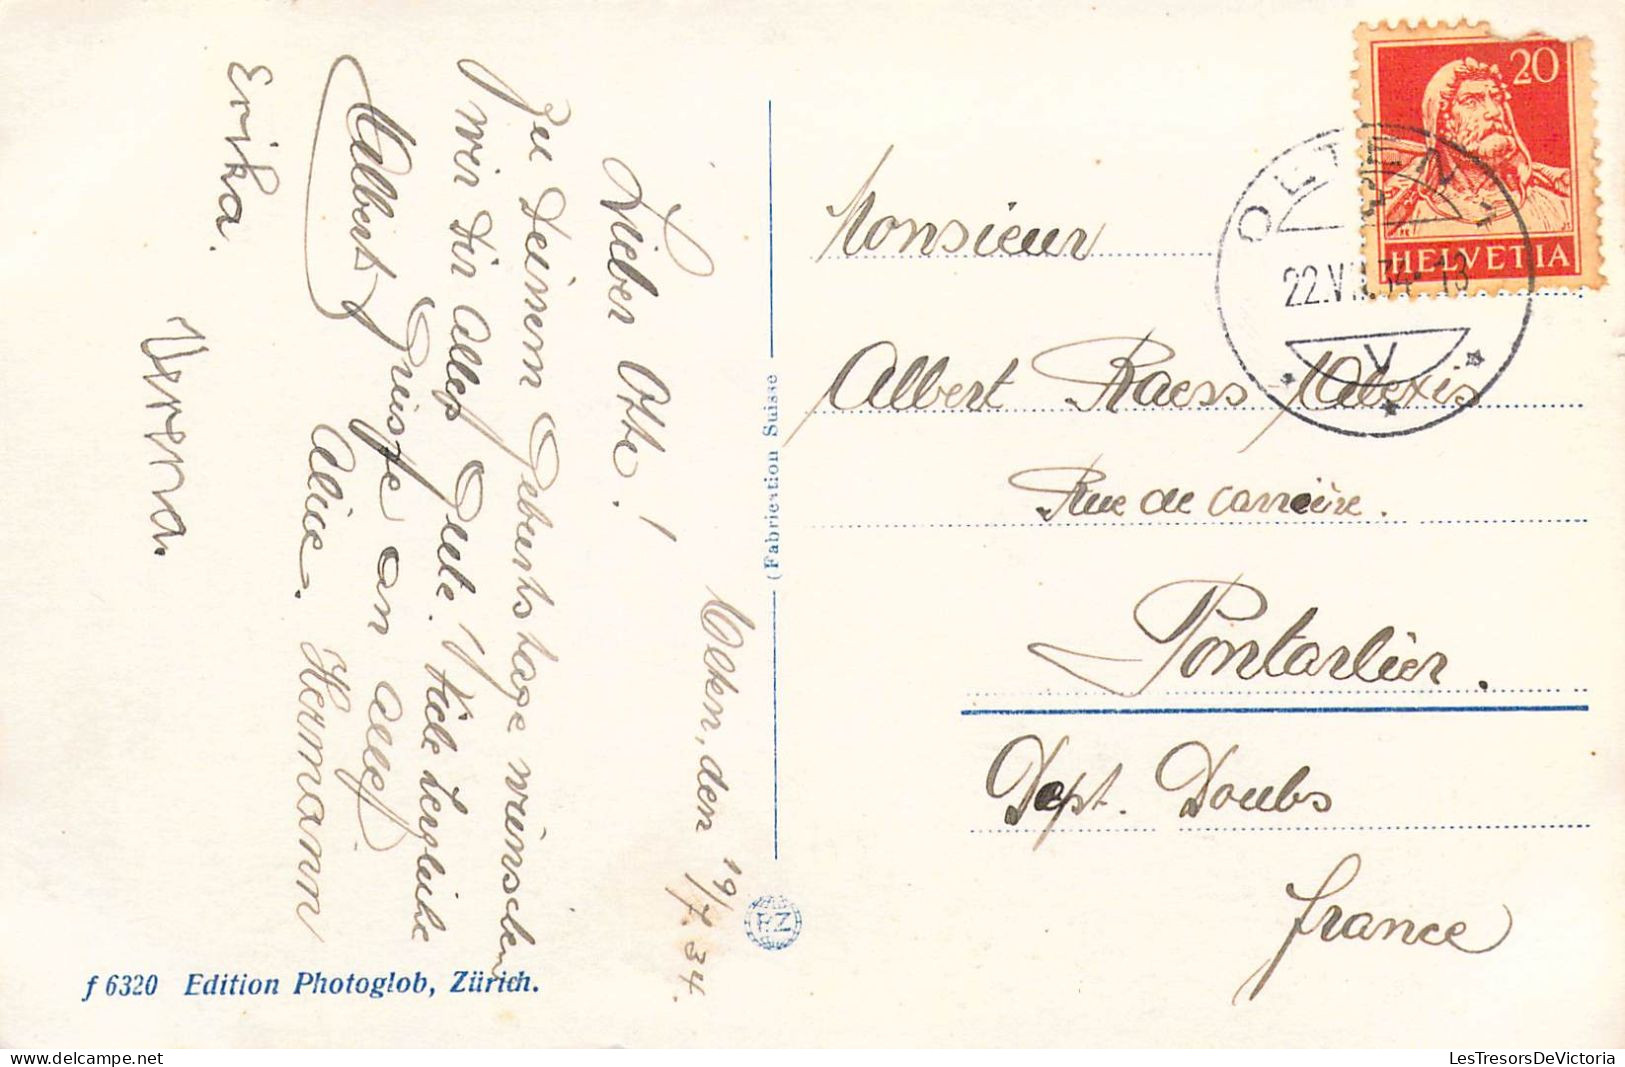 Olten, den 19/7. 34.
Lieber Otto!
Zu Deinem Geburtstage wünschen
wir Dir alles Gute. Viele herzliche
Grüsse an alle
Albert Alice. Hermann
Erika.
Verena.
f 6320 Edition Photoglob, Zürich.
(Fabrication Suisse
PZ
20
HELVETIA
OLTEN 1
22.VII.34-13
V
Monsieur
Albert Raess Alexis
Rue de carrière.
Pontarlier.
Dept. Doubs
france
LesTresorsDeVictoria